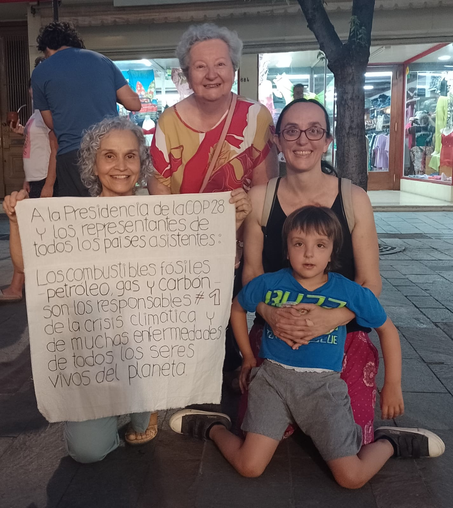 A la Presidencia de la COP 28
y los representantes de
todos los países asistentes:
Los combustibles fósiles
petróleo, gas y carbón
son los responsables #1
de la crisis climática y
de muchas enfermedades
de todos los seres
vivos del planeta
BUZZ